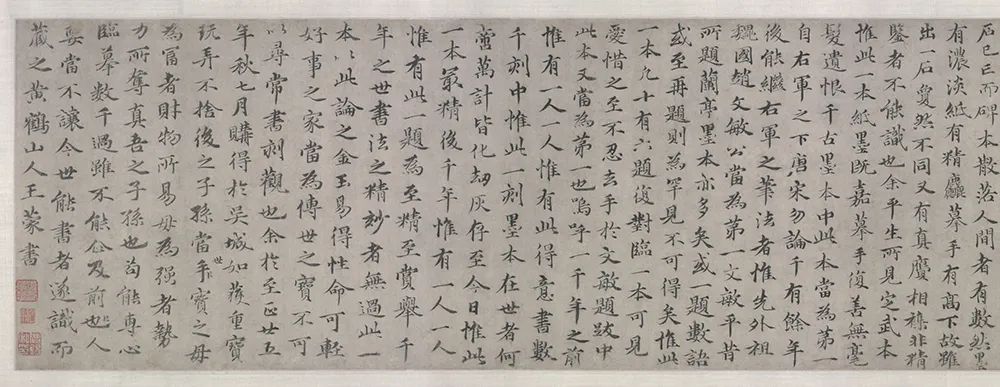 石已亡而碑本散落人間者有數然墨
有濃淡紙有精麤摹手有高下故雖
出一石夐然不同又有真贗相雜非精
鑒者不能識也余平生所見定武本
惟此一本紙墨既嘉摹手復善無毫
髮遺恨千古墨本中此本當為第一
自右軍之下唐宋勿論千有餘年
後能繼右軍之筆法者惟先外祖
魏國趙文敏公當為第一文敏平昔
所題蘭亭墨本亦多矣或一題數語
或至再題則為罕見不可得矣惟此
一本凡十有六題復對臨一本可見
愛惜之至不忍去手於文敏題跋中
此本又當為第一也嗚呼一千年之前
惟有一人一人惟有此得意書數
千刻中惟此一刻墨本在世者何
啻萬計皆化劫灰存至今日惟此
一本最精後千年惟有一人一人
惟有此一題為至精至賞舉千
年之世書法之精妙者無過此一
本以此論之金玉易得性命可輕
好事之家當為傳世之寶不可
以尋常書刻觀也余於至正廿五
年秋七月購得於吳城如獲重寶
玩弄不捨後之子孫當世寶之毋
為富者財物所易毋為強者勢
力所奪真吾之子孫也苟能專心
臨摹數千過雖不能企及前也人
要當不讓今世能書者遂識而
藏之黃鶴山人王蒙書